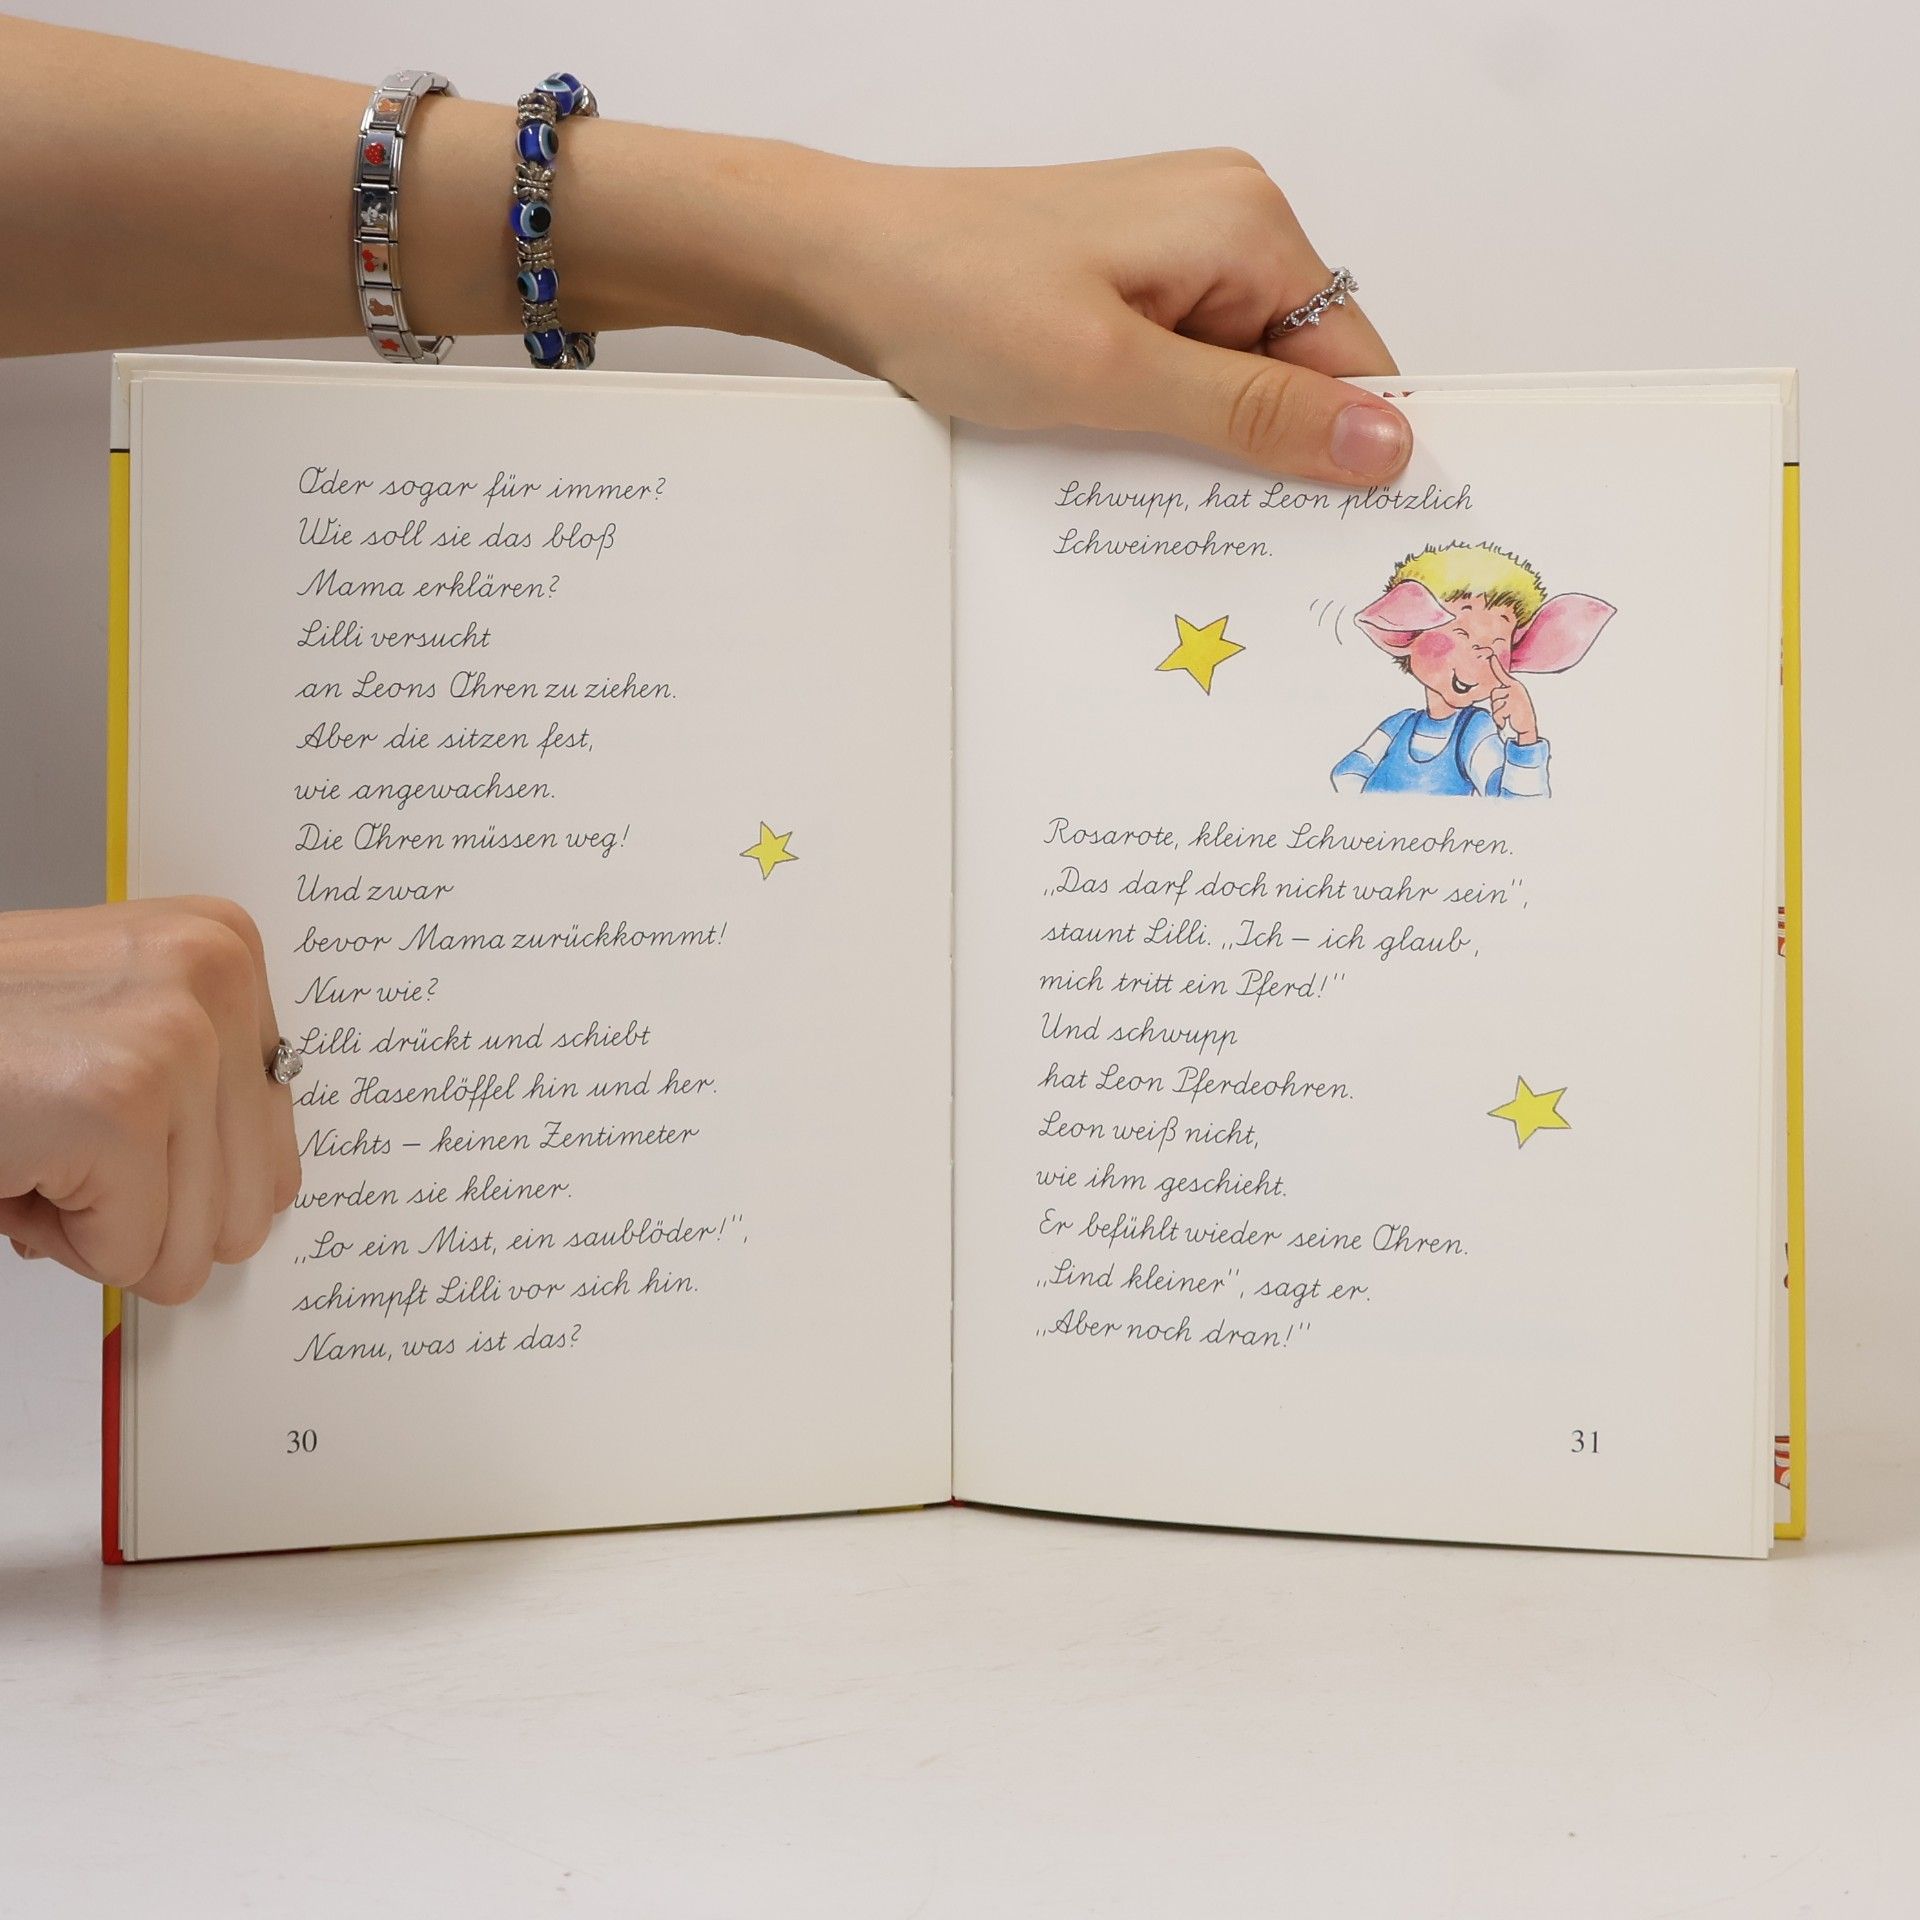 Oder sogar für immer?
Wie soll sie das bloß
Mama erklären?
Lilli versucht
an Leons Ohren zu ziehen.
Aber die sitzen fest,
wie angewachsen.
Die Ohren müssen weg!
Und zwar
bevor Mama zurückkommt!
Nur wie?
Lilli drückt und schiebt
die Hasenlöffel hin und her.
Nichts – keinen Zentimeter
werden sie kleiner.
„So ein Mist, ein saublöder!",
schimpft Lilli vor sich hin.
Nanu, was ist das?
30
Schwupp, hat Leon plötzlich
Schweineohren.
Rosarote, kleine Schweineohren.
„Das darf doch nicht wahr sein",
staunt Lilli. „Ich – ich glaub,
mich tritt ein Pferd!"
Und schwupp
hat Leon Pferdeohren.
Leon weiß nicht,
wie ihm geschieht.
Er befühlt wieder seine Ohren.
„Sind kleiner", sagt er.
„Aber noch dran!"
31